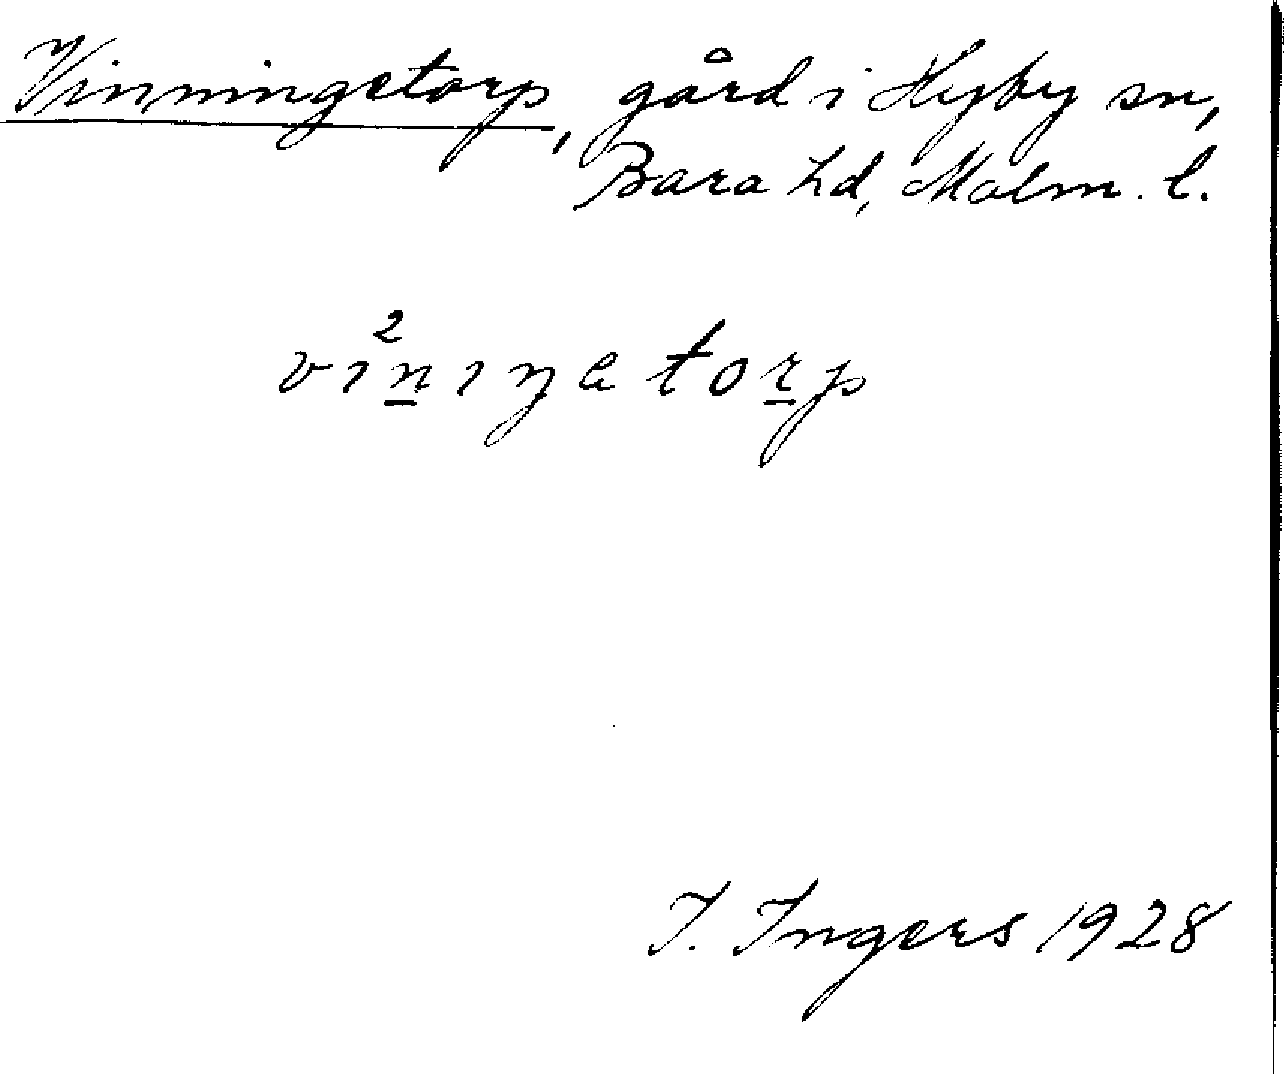 Vinningetorp, gård i Hyby sn,
Bara hd, Malm. l.
vı²n̲ıŋator̲p
I. Ingers 1928